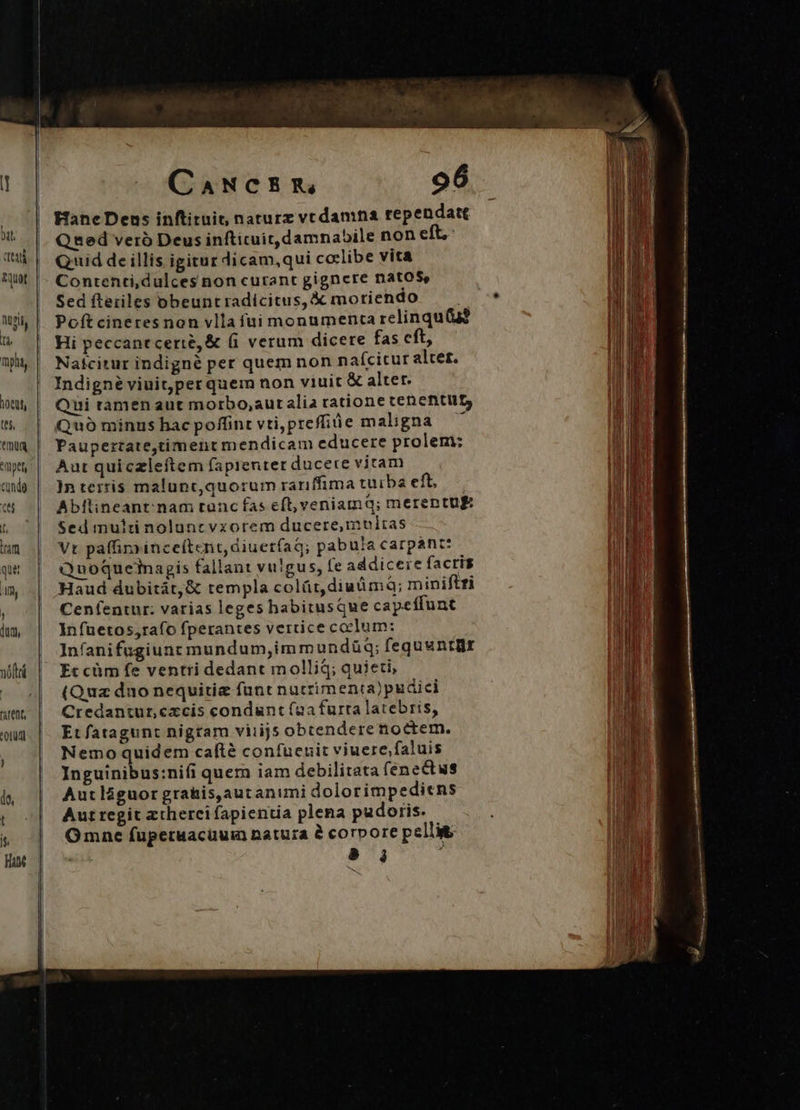 CANCER, 96
Hanc Deus inſtituit, naturæ vt damna rependat:
Quod verò Deus inſtituit, damnabile non eſt.
Quid de illis igitur dicam, qui cœlibe vita
Contenti, dulces non curant gignere natos,
Sed ſteriles obeunt radicitus, & moriendo
Poſt cineres non vlla ſui monumenta relinquūt?
Hi peccant certè, & ſi verum dicere fas eſt,
Naſcitur indignè per quem non naſcitur alter.
Indignè viuit, per quem non viuit & alter.
Qui tamen aut morbo, aut alia ratione tenentur,
Quò minus hac poſſint vti, preſſiúe maligna
Paupertate, timent mendicam educere prolem:
Aut qui cæleſtem ſapienter ducere vitam
In terris malunt, quorum rariſſima turba eſt,
Abſtineant: nam tunc fas eſt, veniamq; merentur.
Sed multi nolunt vxorem ducere, multas
Vt paſſim inceſtent, diuerſaq; pabula carpant:
Quoque magis fallant vulgus, ſe addicere ſacris
Haud dubitāt, & templa colūt, diuûmq; miniſtri
Cenſentur: varias leges habituſque capeſſunt
Inſuetos, raſo ſperantes vertice cœlum:
Inſani fugiunt mundum, immundūq; ſequuntur
Et cùm ſe ventri dedant molliq; quieti,
(Quæ duo nequitiæ ſunt nutrimenta) pudici
Credantur, cæcis condunt ſua furta latebris,
Et ſatagunt nigram vitijs obtendere noctem.
Nemo quidem caſtè conſueuit viuere, ſaluis
Inguinibus: niſi quem iam debilitata ſenectus
Aut lāguor grauis, aut animi dolor impediens
Aut regit ætherei ſapientia plena pudoris.
Omne ſuperuacuum natura è corpore pellit
Hanc